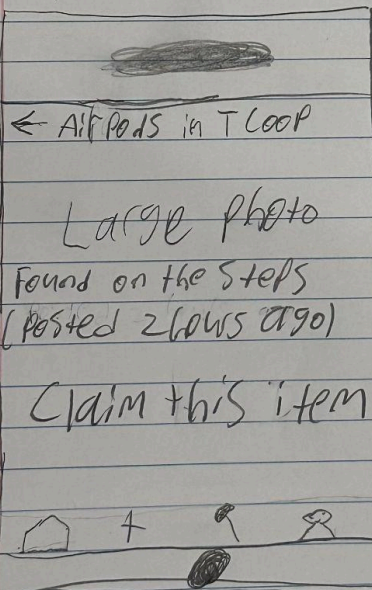 ← AirPods in T LOOP
Large photo
Found on the steps
(Posted 2 hours ago)
Claim this item
+